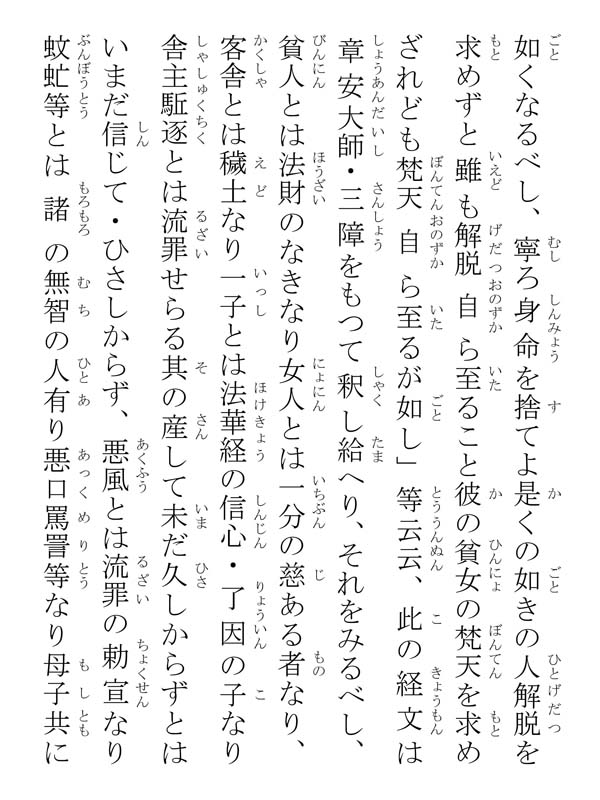 如くなるべし、寧ろ身命を捨てよ是くの如きの人解脱を
求めずと雖も解脱自ら至ること彼の貧女の梵天を求め
ざれども梵天自ら至るが如し」等云云、此の経文は
章安大師・三障をもつて釈し給へり、それをみるべし、
貧人とは法財のなきなり女人とは一分の慈ある者なり、
客舎とは穢土なり一子とは法華経の信心・了因の子なり
舎主駈逐とは流罪せらる其の産して未だ久しからずとは
いまだ信じて・ひさしからず、悪風とは流罪の勅宣なり
蚊虻等とは諸の無智の人有り悪口罵詈等なり母子共に